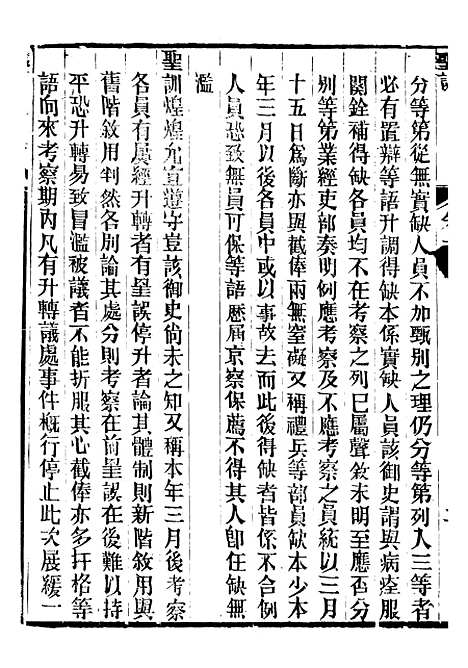 分等第從無實缺人員不加甄別之理仍分等第列入三等者
必有置辯等語升調得缺本係實缺人員該御史謂與病痊服
闋銓補得缺各員均不在考察之列已屬聲敘未明至應否分
別等第業經吏部奏明例應考察及不應考察之員統以三月
十五日爲斷亦與截俸兩無窒礙又稱禮兵等部員缺本少本
年三月以後各員或以事故去而此後得缺者皆係不得列保
人員恐致無員可保等語歷屆京察保薦不得其人卽任缺無
濫
聖訓煌煌允宜遵守豈該御史尙未之知又稱本年三月後考察
各員有屢經升轉者有呈誤停升者論其體制則新階敘用與
舊階敘用判然各別論其處分則考察在前呈誤在後難以持
平恐升轉易致冒濫被議者不能折服其心截俸亦多扞格等
語向來考察期內凡有升轉議處事件槪行停止此次展緩一